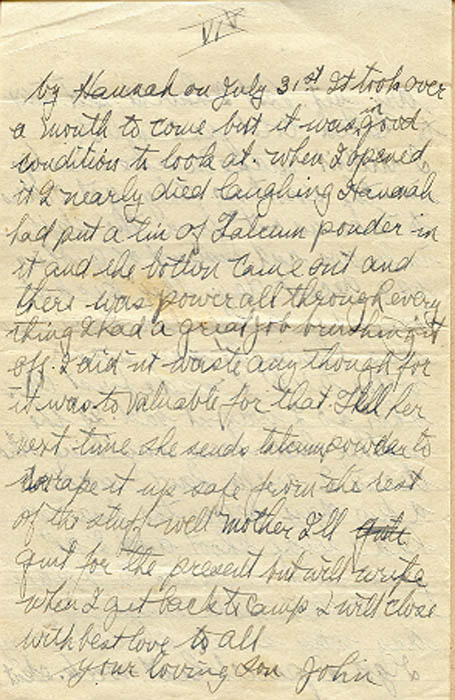 VIV
by Hannah on July 31st It took over
a month to come but it was in good
condition to look at. when I opened
it I nearly died laughing Hannah
had put a tin of Talcum ponder in
it and the botton came out and
there was power all through every
thing I had a great job brushing it
off. I did'nt waste any though for
it was to valuable for that. Tell her
next time she sends talcum powder to
wrape it up safe from the rest
of the stuff well mother I'll quite
quit for the present but will write
when I get back to Camp I will close
with best love to all
Your loving Son John